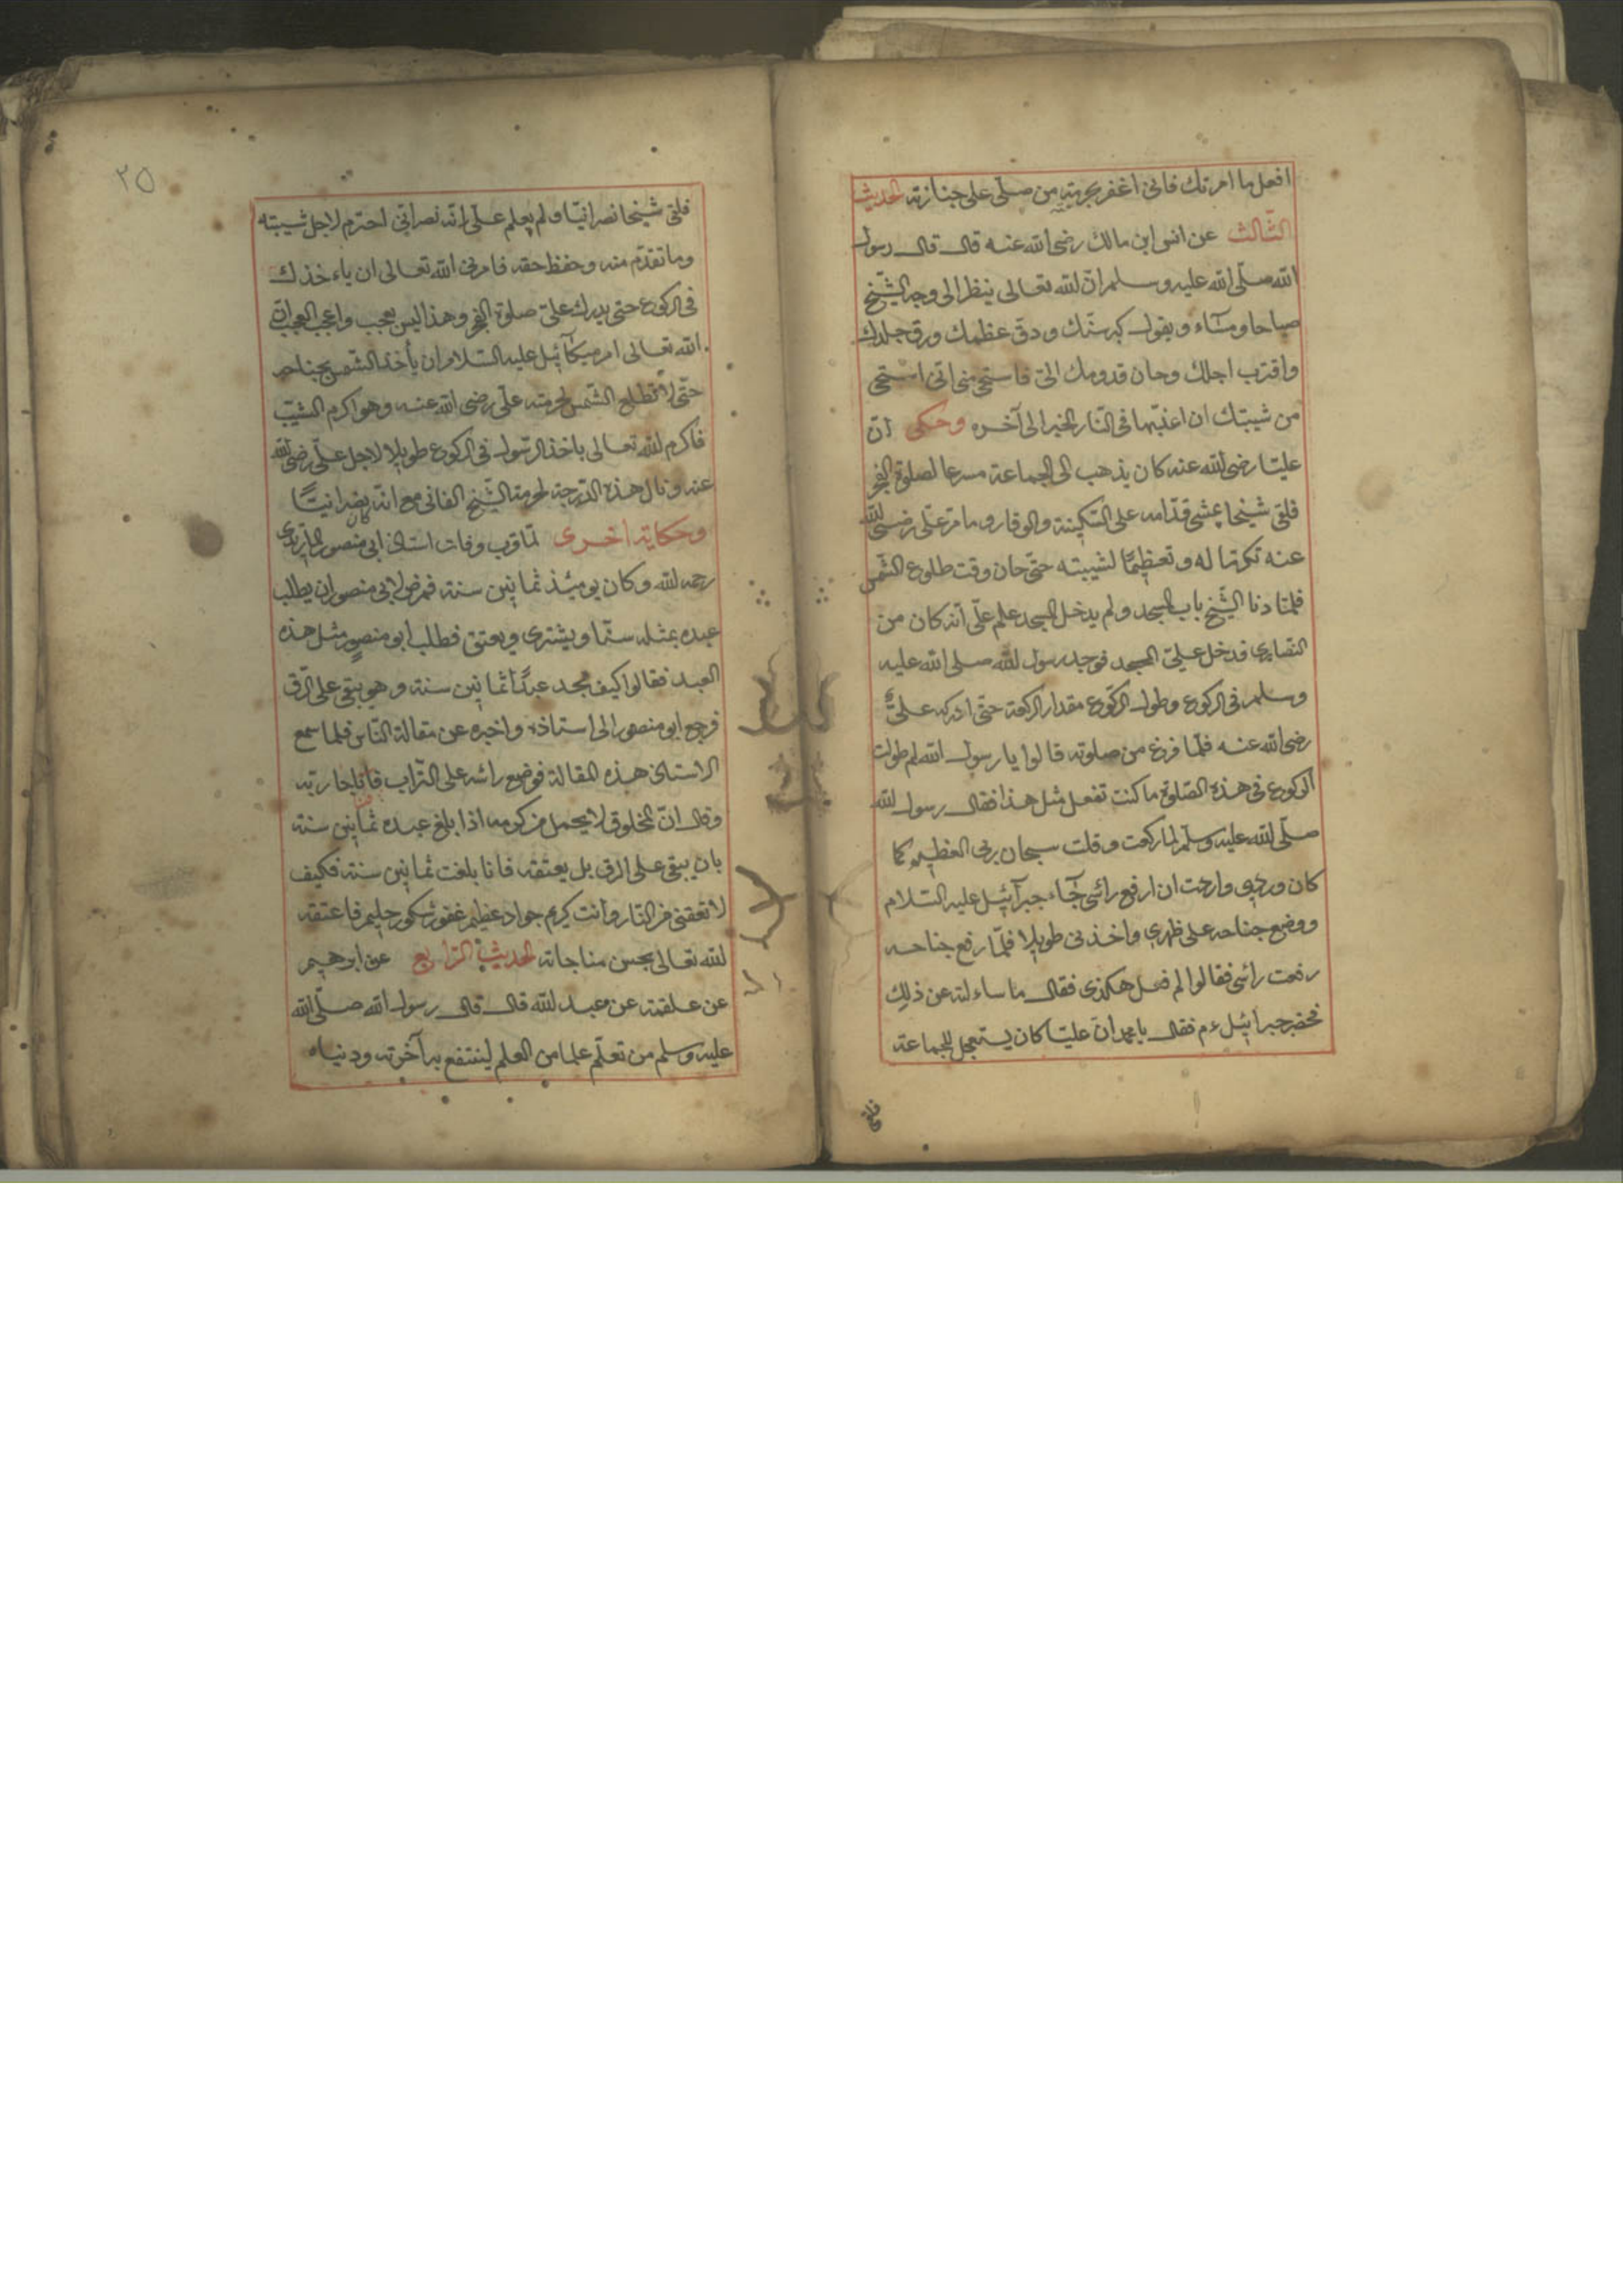 افعل ما امرتك فانى اغفر بحرمته من صلّى على جنازته الحديث
الثّالث عن انس ابن مالك رضى الله عنه قال قال رسول
الله صلّى الله عليه وسلم انّ الله تعالى ينظر الى وجه الشّيخ
صباحا ومسآء ويقول كبر سنّك ودقّ عظمك ورق جلدك
واقترب اجلك وحان قدومك الىّ فاستحى منى انّى استحى
من شيبتك ان اعذّبها فى النّار الخبر الى آخره وحكى انّ
عليّا رضى الله عنه كان يذهب الى الجماعة مسرعا لصلوة الفجر
فلقى شيخا يمشى قدّامه على السّكينة والوقار وما مرّ علّى رضى الله
عنه تكرّما له وتعظيمًا لشيبته حتّى حان وقت طلوع الشّمس
فلمّا دنا الشّيخ باب المسجد ولم يدخل المسجد علم علّى انّه كان من
النّصارى فدخل علىّ المسجد فوجد رسول الله صلى الله عليه
وسلم فى الركوع وطول الرّكوع مقدار الركعة حتّى ادركه علىّ
رضى الله عنه فلمّا فرغ من صلوته قالوا يا رسول الله لم طولت
الركوع فى هذه الصّلوة ما كنت تفعل مثل هذا فقال رسول الله
صلّى الله عليه وسلّم لما ركعت وقلت سبحان ربى العظيم كما
كان وردى واردت ان ارفع رائسى جآء جبرآئيل عليه السّلام
ووضع جناحه على ظهرى واخذنى طويلا فلمّا رفع جناحه
رفعت رائسى فقالوا لم فعل هكذى فقال ما ساءلته عن ذلك
فحضر جبرائيل ءم فقال يا محمد انّ عليّا كان يستعجل للجماعة
فلقى
٢٥
فلقى شيخا نصرانيّا ولم يعلم علّى انّه نصرانّى احترم لاجل شيبته
وما تقدّم منه وحفظ حقه فامرنى الله تعالى ان ياءخذك
فى الركوع حتى يدرك علىّ صلوة الفجر وهذا ليس بعجب واعجب العجب انّ
الله تعالى امر ميكآئيل عليه السّلام ان يأخذ الشّمس بجناحه
حتّى لا تطلع الشّمس لحرمته علّى رضى الله عنه وهو اكرم الشّيب
فاكرم الله تعالى باخذ الرّسول فى الركوع طويلا لاجل علّى رضى الله
عنه ونال هذه الدّرجة لحرمة الشّيخ الفانى مع انّه كان نصرانيّا
وحكاية اخرى لمّا قرب وفات استاذ ابى منصور الماتريدى
رحمه الله وكان يومئذ ثمانين سنة فمرض لابى منصور ان يطلب
عبده بمثله سنّا ويشترى ويعتق فطلب ابو منصور مثل هذه
العبد فقالوا كيف نجد عبدًا ثمانين سنة وهو يبقى على الرّق
فرجع ابو منصور الى استاذه واخبره عن مقالة النّاس فلما سمع
الاستاذ هذه المقالة فوضع رائسه على التّراب فناجا ربّه
وقال انّ المخلوق لا يحمل من كرمه اذا بلغ عبده ثمانين سنة
بان يبقى على الرق بل يعتقه فانا بلغت ثمانين سنة فكيف
لا تعتقنى من النّار وانت كريم جواد عظيم غفور شكور حليم فاعتقه
الله تعالى بحسن مناجاته الحديث الرّابع عن ابرهيم
عن علقمة عن عبد الله قال قال رسول الله صلّى الله
عليه وسلم من تعلّم علما من العلم لينتفع به آخرته ودنياه